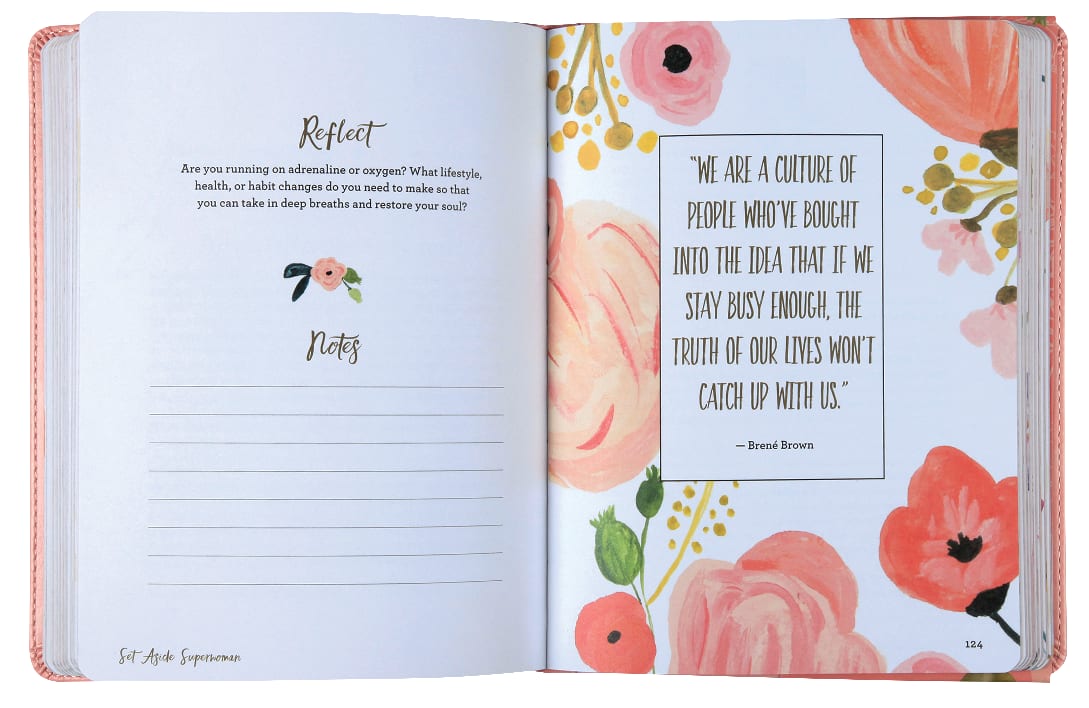 Reflect
Are you running on adrenaline or oxygen? What lifestyle,
health, or habit changes do you need to make so that
you can take in deep breaths and restore your soul?
Notes
Set Aside Superwoman
“WE ARE A CULTURE OF
PEOPLE WHO’VE BOUGHT
INTO THE IDEA THAT IF WE
STAY BUSY ENOUGH, THE
TRUTH OF OUR LIVES WON’T
CATCH UP WITH US.”
— Brené Brown
124